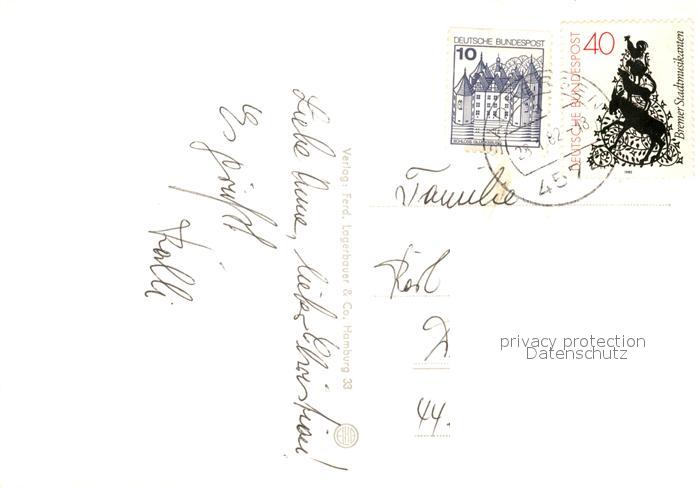 Liebe Anne, lieber Christian!
Es grüßt
Kalli
Verlag: Ferd. Lagerbauer & Co. Hamburg 33
DEUTSCHE BUNDESPOST
10
DEUTSCHE BUNDESPOST
40
Bremer Stadtmusikanten
1982
457
Familie
Karl
44.
privacy protection
Datenschutz